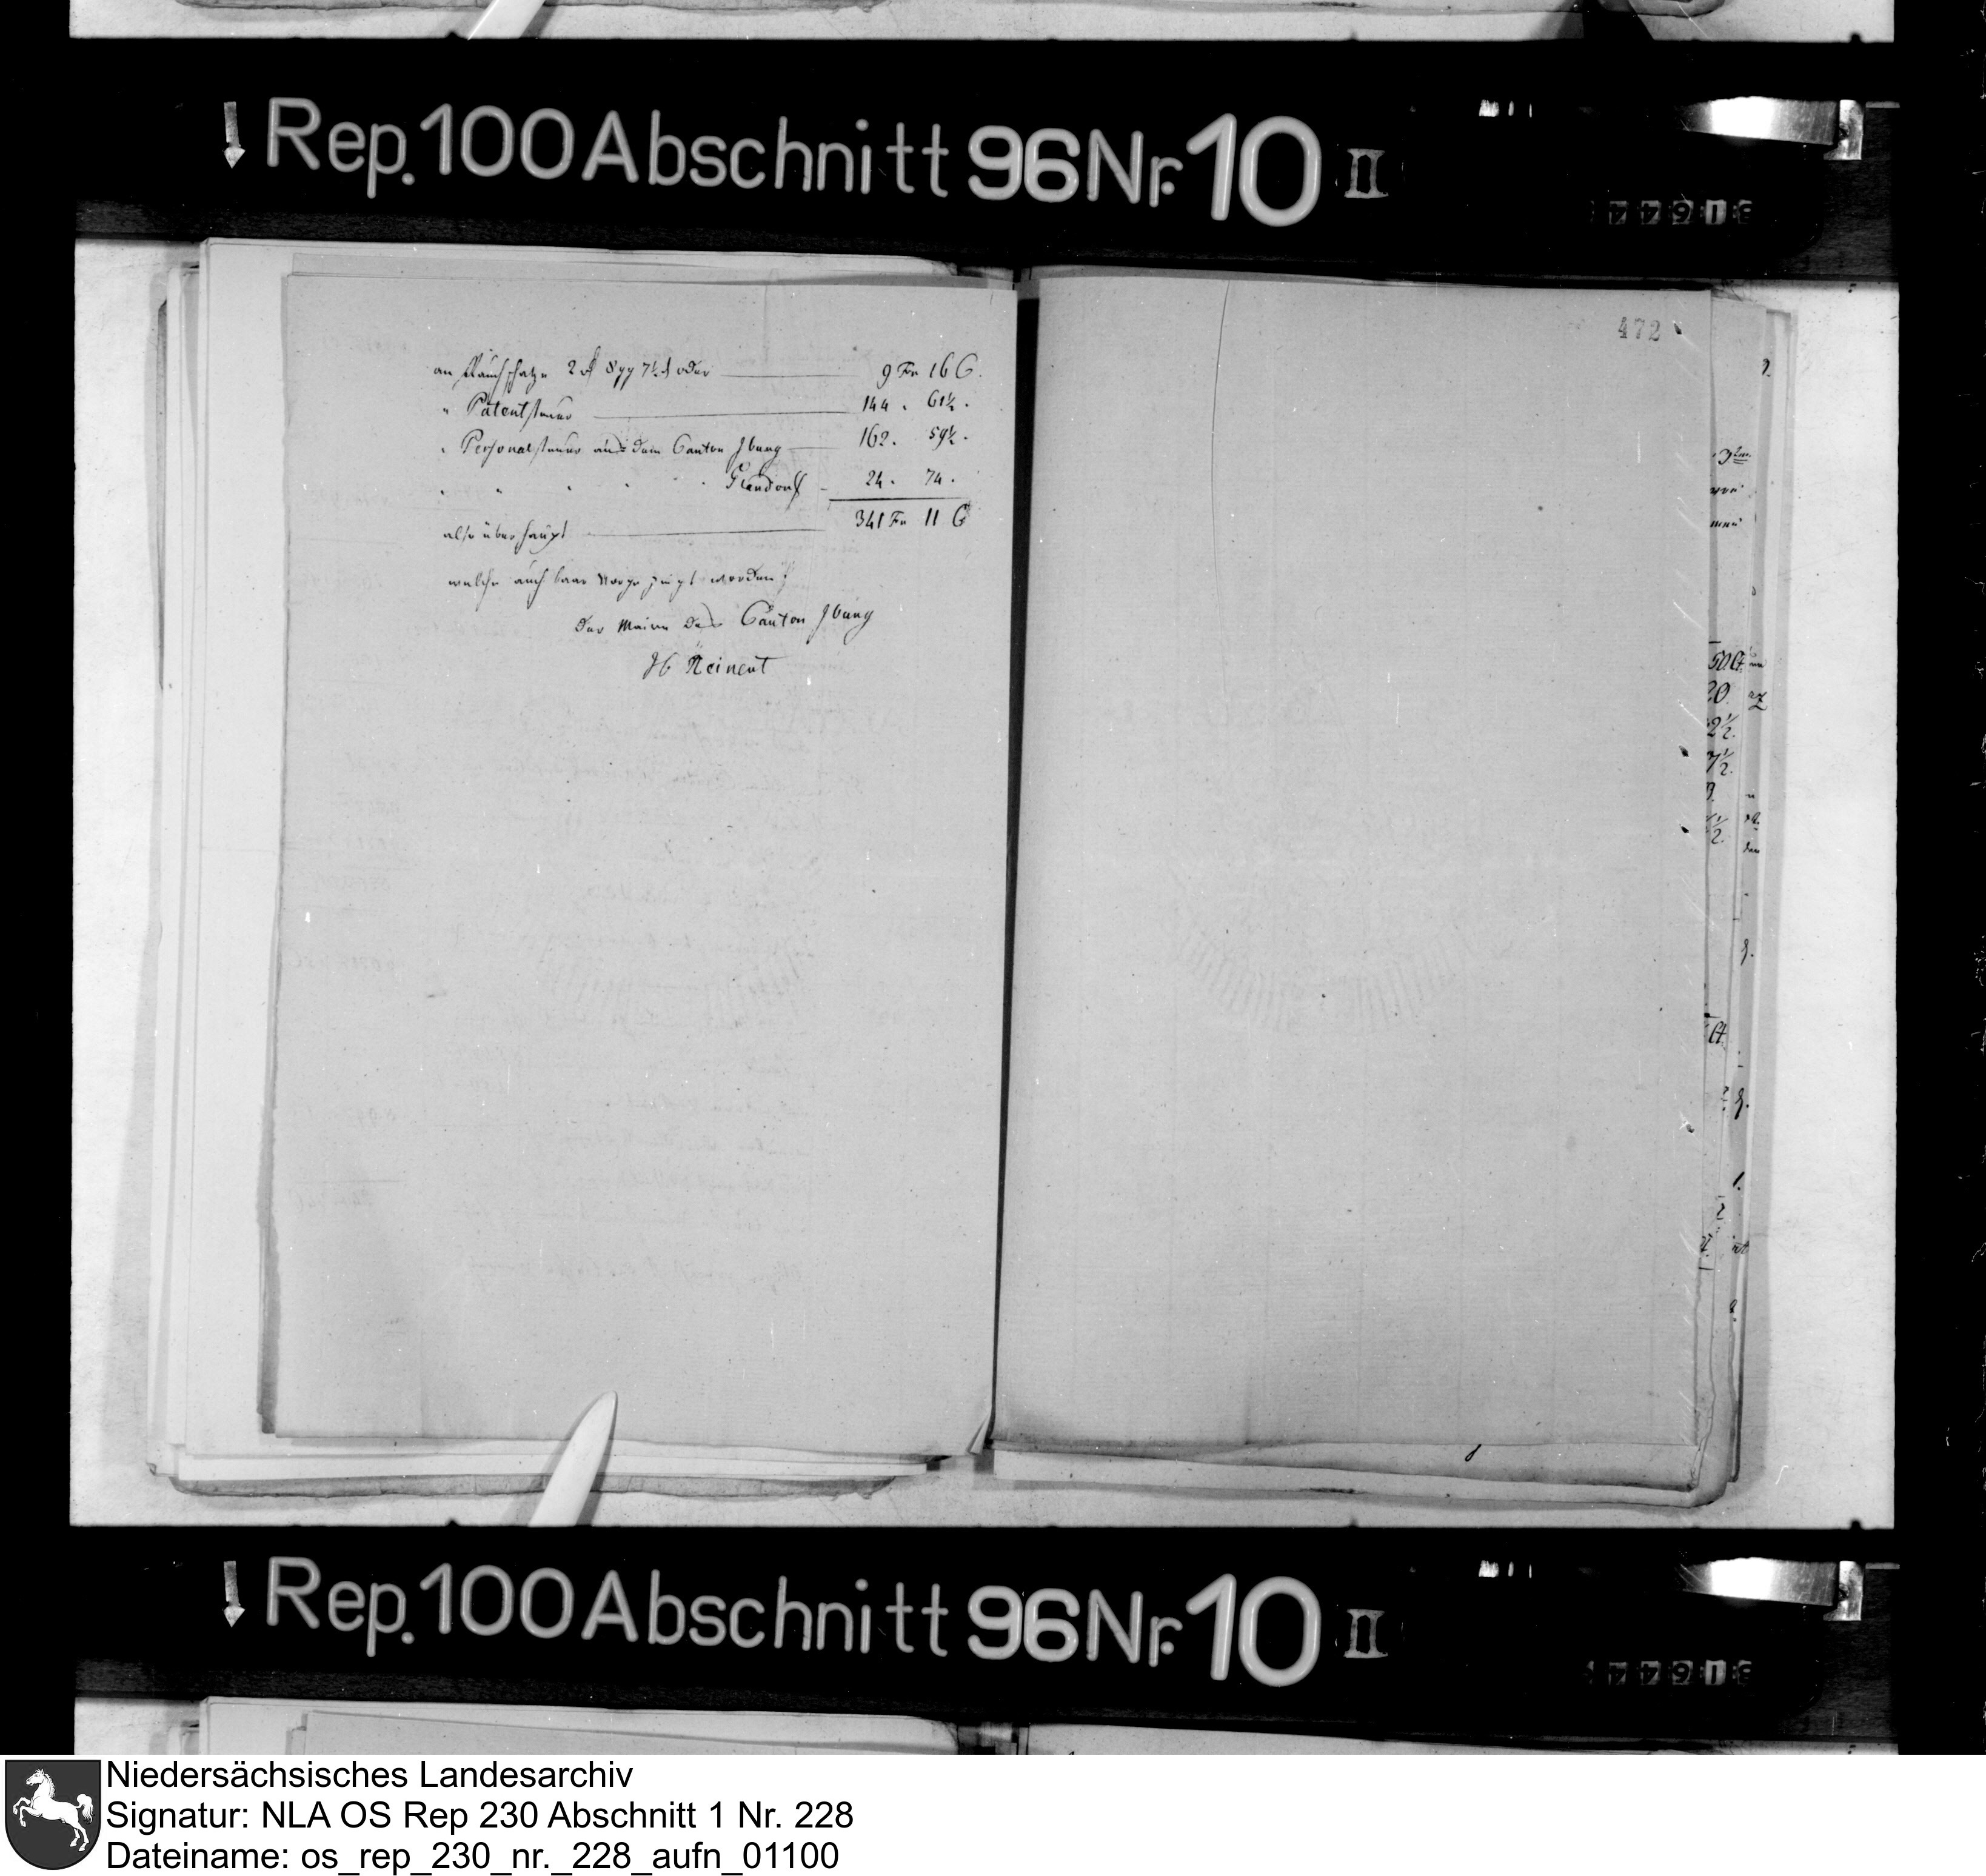 Rep. 100 Abschnitt 96 Nr. 10 II
472
an Rauchschatze 2 rt 8 gg 7½ d oder 9 Fr 16 C.
" Patentsteuer 144 . 61½ .
" Personalsteuer aus dem Canton Iburg 162 . 59½ .
" " " " " Glandorf 24 . 74 .
also überhaupt 341 Fr 11 C
welche auch baar vorgezeigt worden
Der Maire des Canton Iburg
Rep. 100 Abschnitt 96 Nr. 10 II
Niedersächsisches Landesarchiv
Signatur: NLA OS Rep 230 Abschnitt 1 Nr. 228
Dateiname: os_rep_230_nr._228_aufn_01100